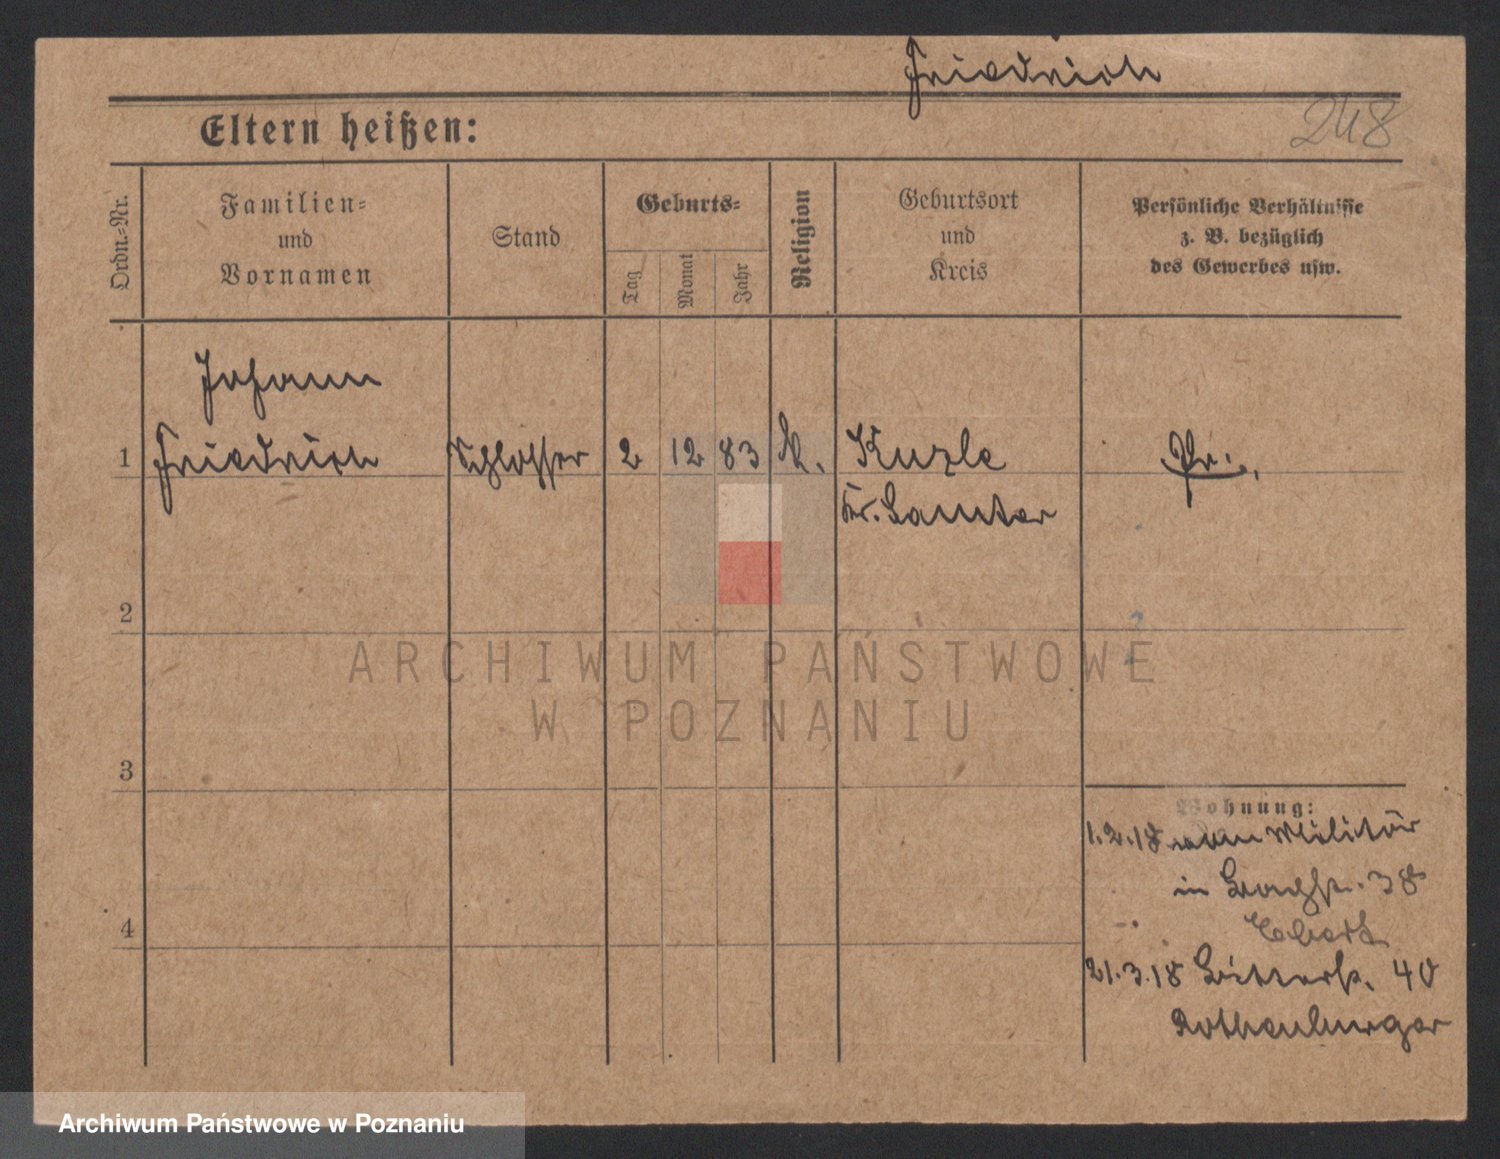 Friedrich
248
Eltern heißen:
Ordn.-Nr.
Familien-
und
Vornamen
Stand
Geburts-
Tag
Monat
Jahr
Religion
Geburtsort
und
Kreis
Persönliche Verhältnisse
z. B. bezüglich
des Gewerbes usw.
Johann
1 Friedrich Schlosser 2 12 83 k. Kuzle Pr.
Kr. Samter
2
3
4
Wohnung:
1.2.18 vom Militär
in 38
Ebert
21.3.18 Bitterstr. 40
Rothenburger
ARCHIWUM PAŃSTWOWE
W POZNANIU
Archiwum Państwowe w Poznaniu